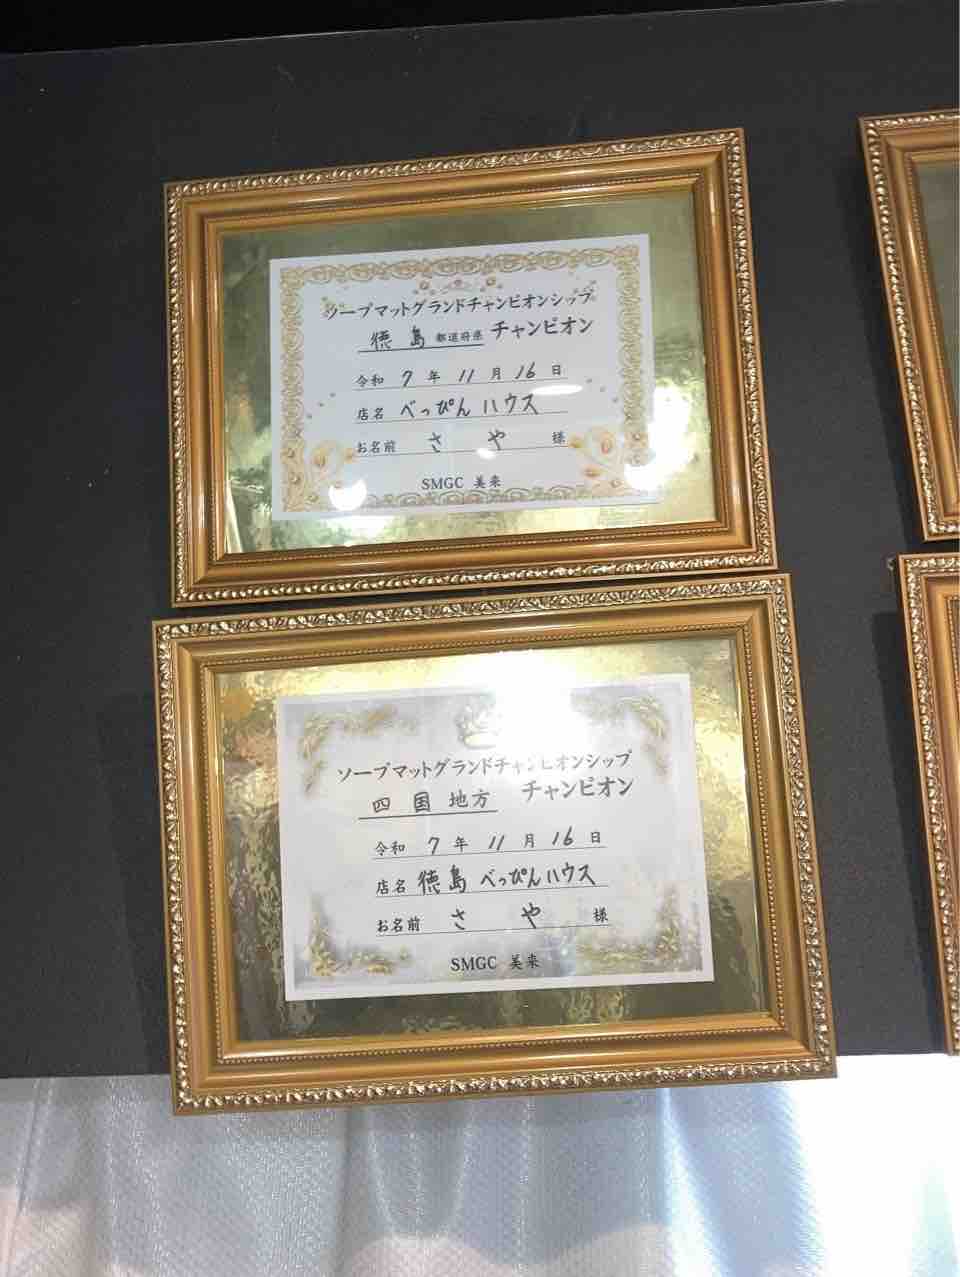 ソープマットグランドチャンピオンシップ
徳島都道府県 チャンピオン
令和 7 年 11 月 16 日
店名 べっぴんハウス
お名前 さ や 様
SMGC 美来
ソープマットグランドチャンピオンシップ
四国地方 チャンピオン
令和 7 年 11 月 16 日
店名 徳島べっぴんハウス
お名前 さ や 様
SMGC 美来